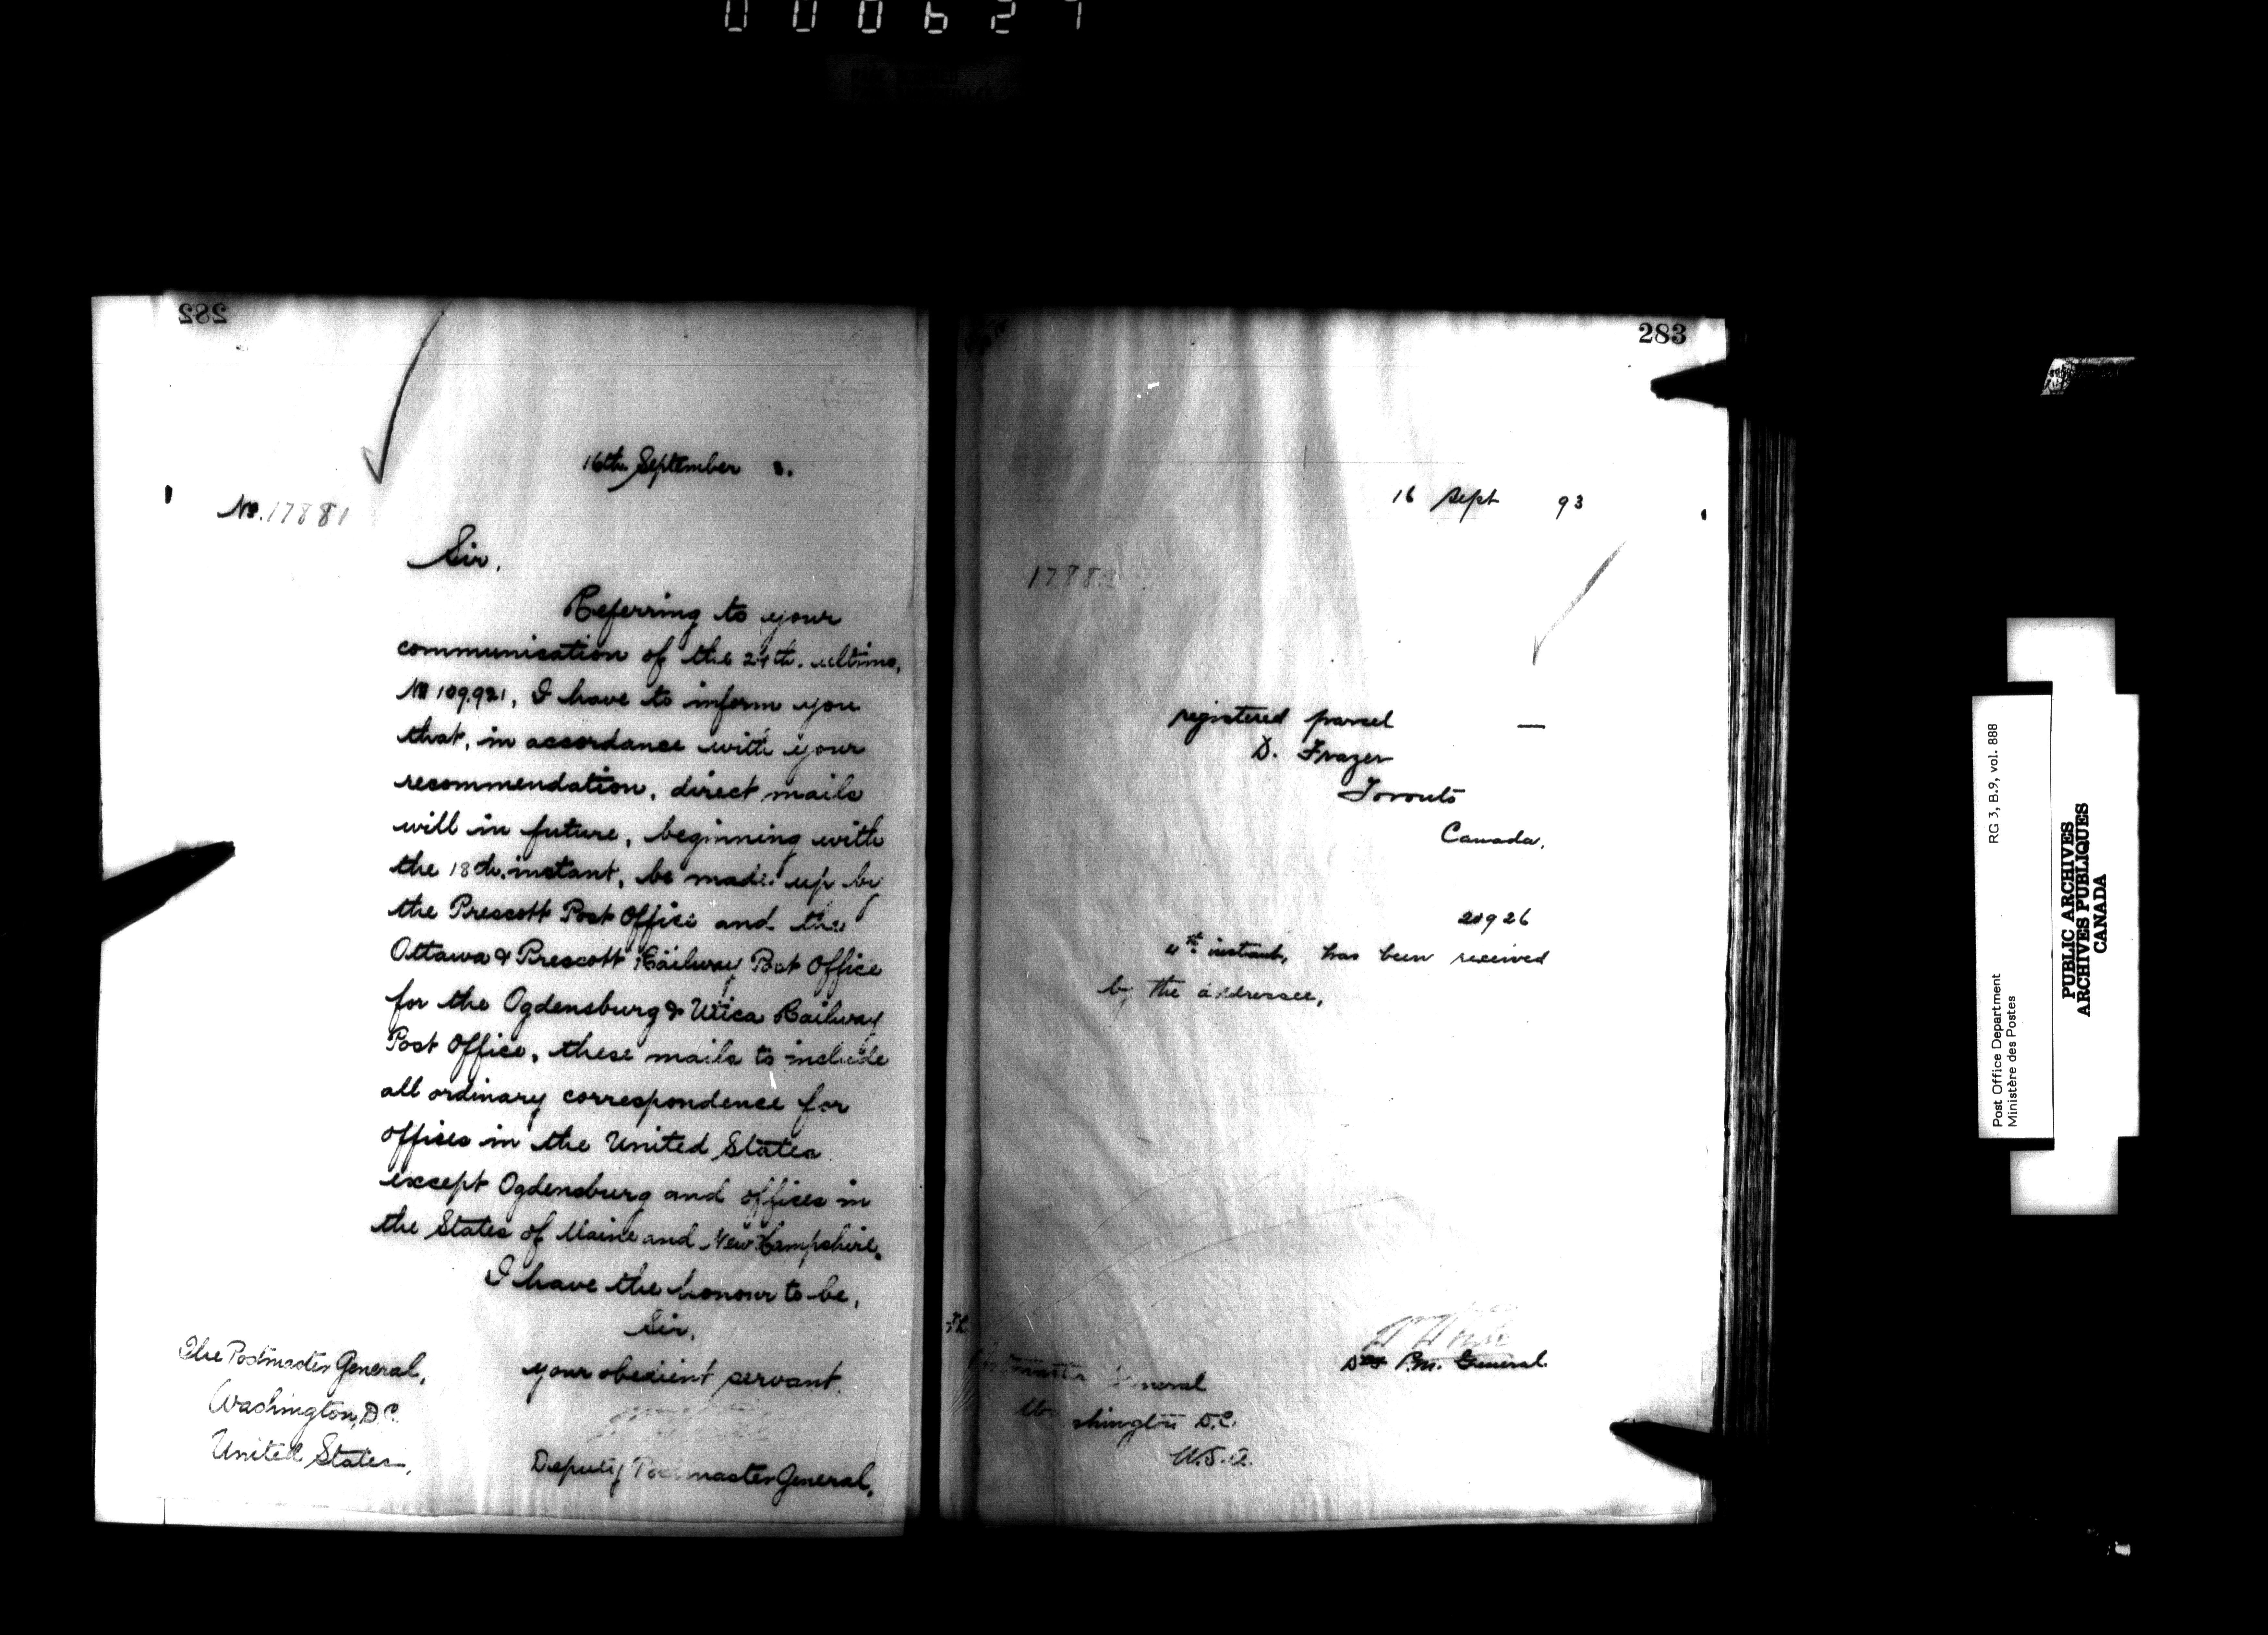 000627
282
16th September 3.
No. 17881
Sir,
Referring to your
communication of the 24th. ultimo,
No 109,921, I have to inform you
that, in accordance with your
recommendation, direct mails
will in future, beginning with
the 18th. instant, be made up by
the Prescott Post Office and the
Ottawa & Prescott Railway Post Office
for the Ogdensburg & Utica Railway
Post Office, these mails to include
all ordinary correspondence for
offices in the United States
except Ogdensburg and offices in
the States of Maine and New Hampshire.
I have the honour to be,
Sir,
your obedient servant,
Deputy Postmaster General.
The Postmaster General,
Washington, D.C.
United States.
283
16 Sept 93
17882
registered parcel —
D. Frazer
Toronto
Canada,
20926
4th instant, has been received
by the addressee,
P.M. General.
General
Washington D.C.
U.S.A.
RG 3, B.9, vol. 888
Post Office Department
Ministère des Postes
PUBLIC ARCHIVES
ARCHIVES PUBLIQUES
CANADA